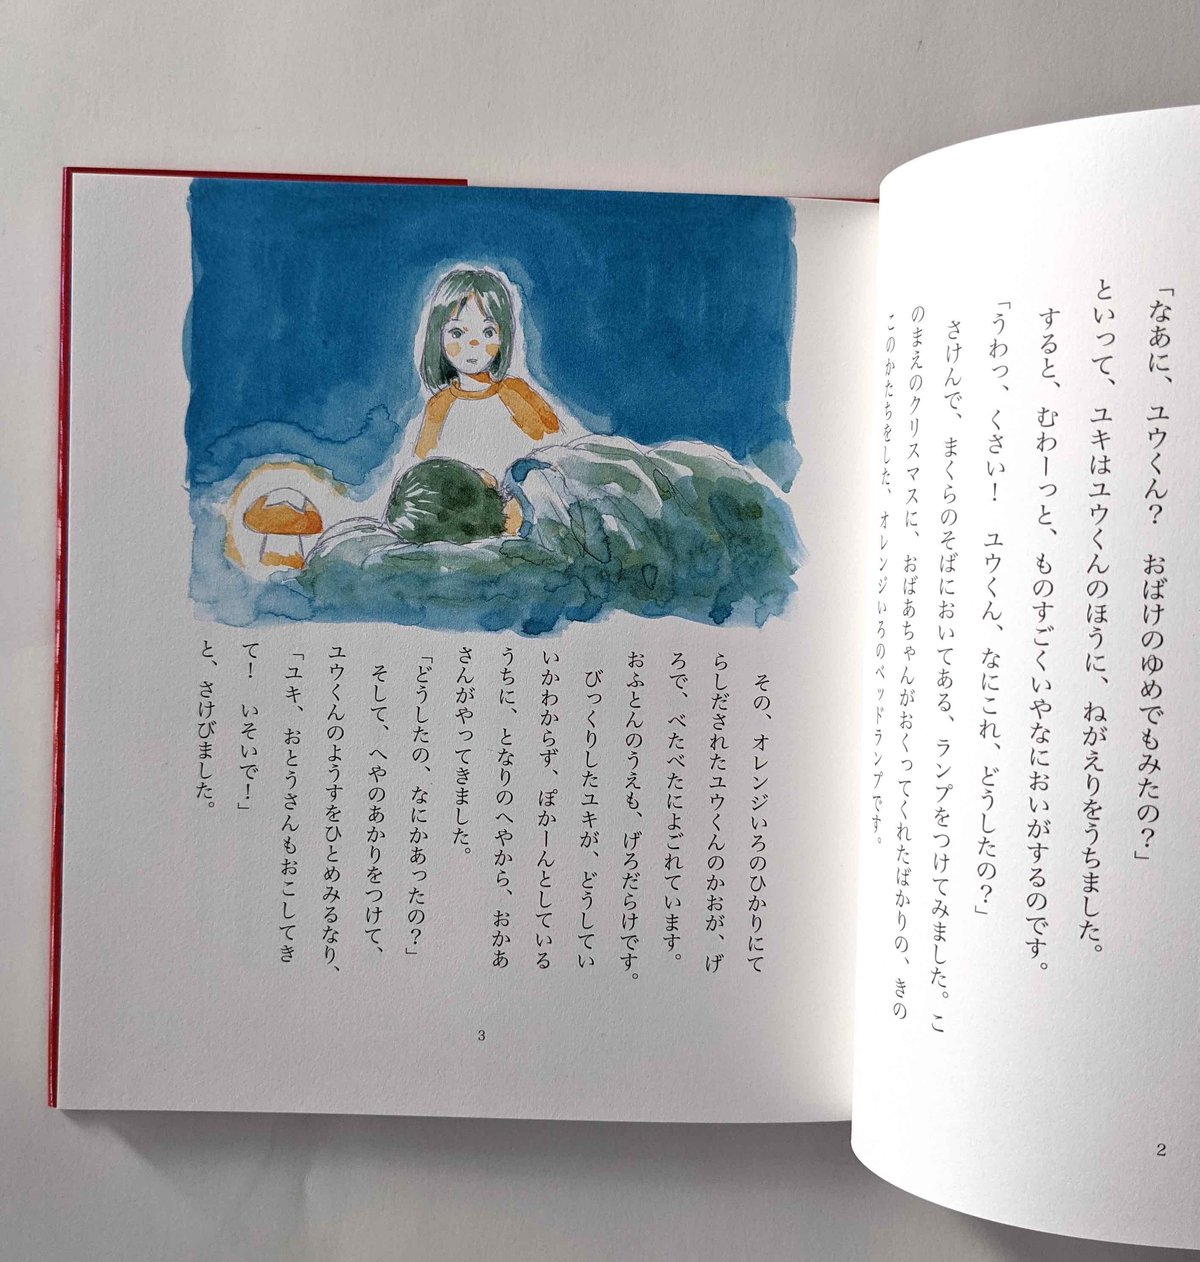 「なあに、ユウくん？　おばけのゆめでもみたの？」
といって、ユキはユウくんのほうに、ねがえりをうちました。
すると、むわーっと、ものすごくいやなにおいがするのです。
「うわっ、くさい！　ユウくん、なにこれ、どうしたの？」
さけんで、まくらのそばにおいてある、ランプをつけてみました。こ
のまえのクリスマスに、おばあちゃんがおくってくれたばかりの、きの
このかたちをした、オレンジいろのベッドランプです。
2
その、オレンジいろのひかりにて
らしだされたユウくんのかおが、げ
ろで、べたべたによごれています。
おふとんのうえも、げろだらけです。
びっくりしたユキが、どうしてい
いかわからず、ぽかーんとしている
うちに、となりのへやから、おかあ
さんがやってきました。
「どうしたの、なにかあったの？」
そして、へやのあかりをつけて、
ユウくんのようすをひとめみるなり、
「ユキ、おとうさんもおこしてき
て！　いそいで！」
と、さけびました。
3